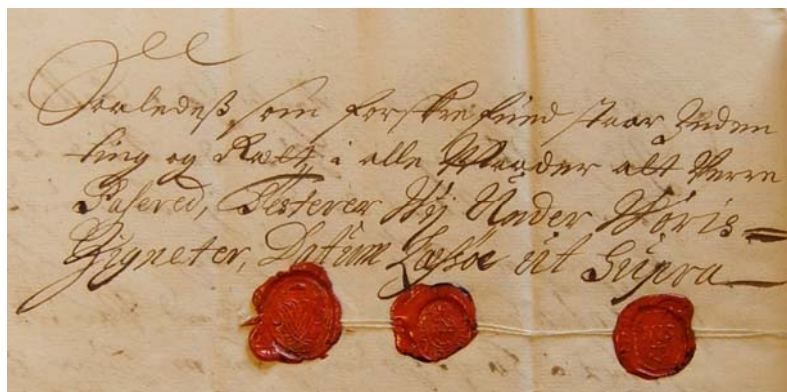 Saaledeß som forskrefued staar Inden
ting og Rætt, i alle Maader alt Verre
Pasered, Testerer Wÿ Under Woris=
Zigneter, Datum Læßøe ut Supra